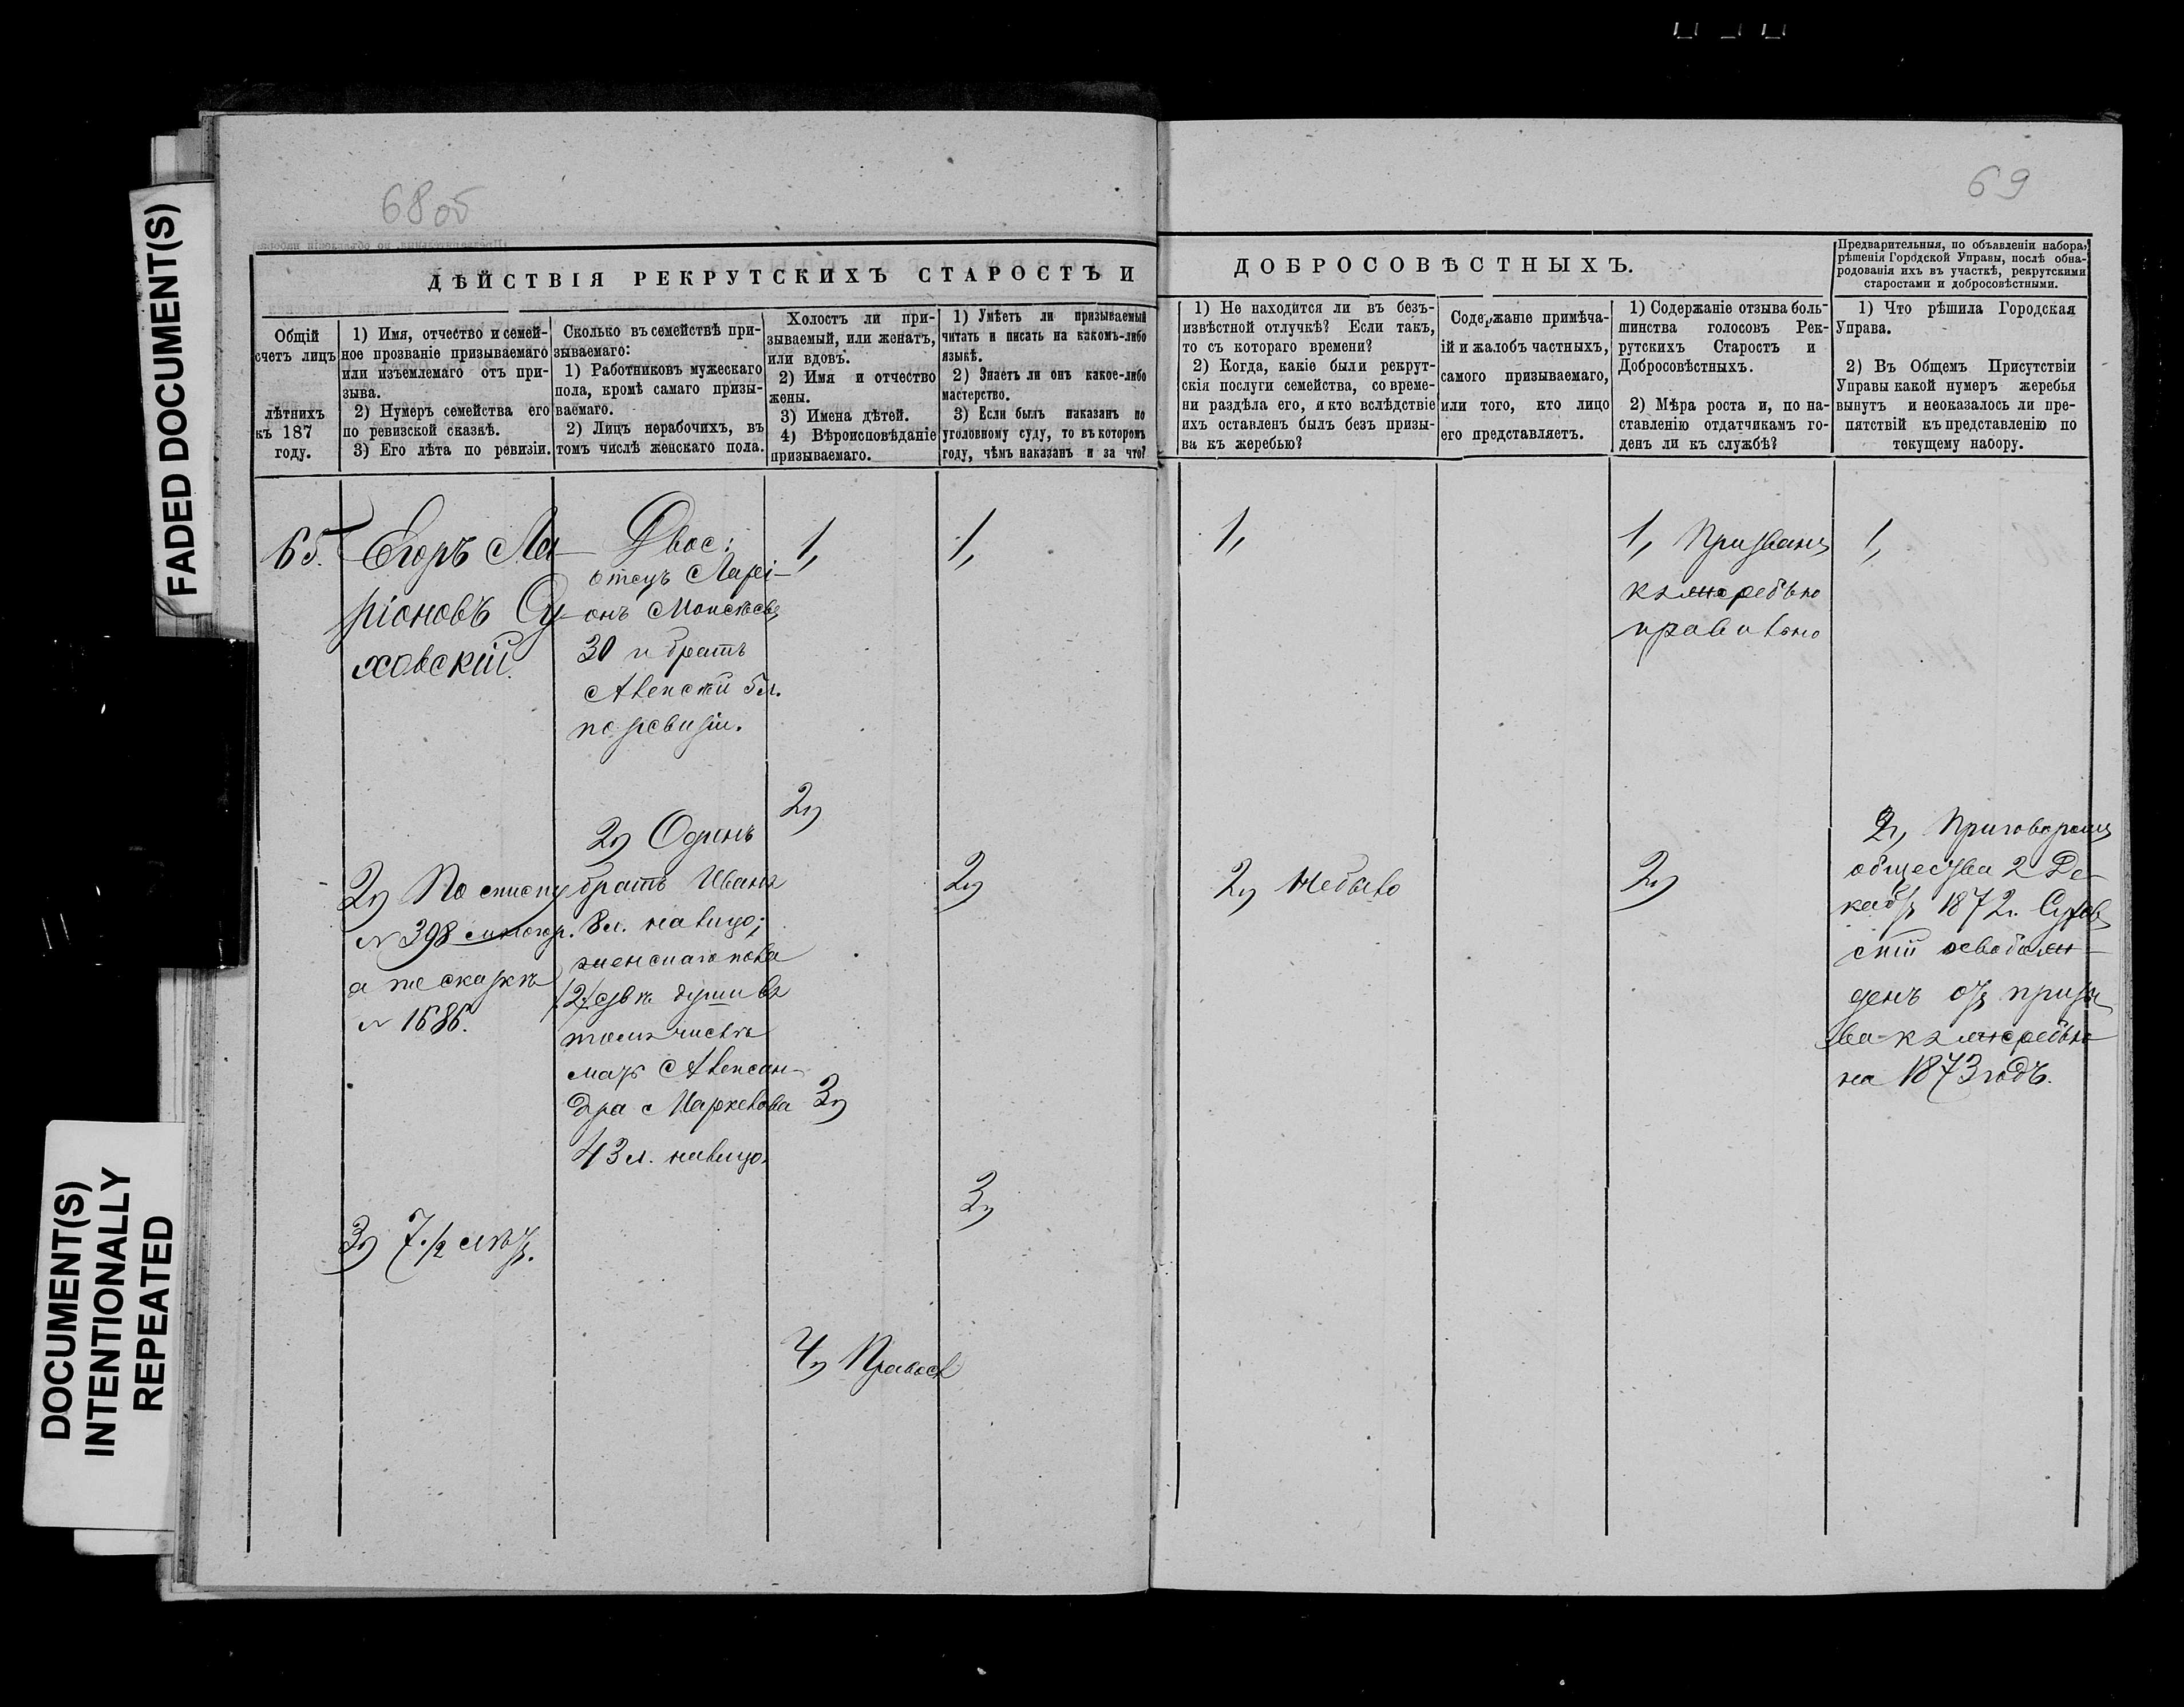 FADED DOCUMENT(S)
DOCUMENT(S)
INTENTIONALLY
REPEATED
68 об
69
ДѢЙСТВІЯ РЕКРУТСКИХЪ СТАРОСТЪ И
ДОБРОСОВѢСТНЫХЪ.
Предварительныя, по объявленіи набора,
рѣшенія Городской Управы, послѣ обна-
родованія ихъ въ участкѣ, рекрутскими
старостами и добросовѣстными.
Общій
счетъ лицъ
лѣтнихъ
къ 187
году.
1) Имя, отчество и семей-
ное прозваніе призываемаго
или изъемлемаго отъ при-
зыва.
2) Нумеръ семейства его
по ревизской сказкѣ.
3) Его лѣта по ревизіи.
Сколько въ семействѣ при-
зываемаго:
1) Работниковъ мужескаго
пола, кромѣ самаго призы-
ваемаго.
2) Лицъ нерабочихъ, въ
томъ числѣ женскаго пола.
Холостъ ли при-
зываемый, или женатъ,
или вдовъ.
2) Имя и отчество
жены.
3) Имена дѣтей.
4) Вѣроисповѣданіе
призываемаго.
1) Умѣетъ ли призываемый
читать и писать на какомъ-либо
языкѣ.
2) Знаетъ ли онъ какое-либо
мастерство.
3) Если былъ наказанъ по
уголовному суду, то въ которомъ
году, чѣмъ наказанъ и за что?
1) Не находится ли въ безъ-
извѣстной отлучкѣ? Если такъ,
то съ котораго времени?
2) Когда, какіе были рекрут-
скія послуги семейства, со време-
ни раздѣла его, и кто вслѣдствіе
ихъ оставленъ былъ безъ призы-
ва къ жеребью?
Содержаніе примѣча-
ій и жалобъ частныхъ,
самого призываемаго,
или того, кто лицо
его представляетъ.
1) Содержаніе отзыва боль-
шинства голосовъ Рек-
рутскихъ Старостъ и
Добросовѣстныхъ.
2) Мѣра роста и, по на-
ставленію отдатчикамъ го-
денъ ли къ службѣ?
1) Что рѣшила Городская
Управа.
2) Въ Общемъ Присутствіи
Управы какой нумеръ жеребья
вынутъ и неоказалось ли пре-
пятствій къ представленію по
текущему набору.
65.
Егоръ Ла-
ріоновъ Су-
ховскій.
2) По списку
№ 398
а по сказкѣ
№ 1686.
3) 7 1/2 лѣтъ.
Двое:
отецъ Ларі-
онъ Моисѣевъ
30 и братъ
Алексѣй 5 л.
по ревизіи.
2) Одинъ
братъ Иванъ
8 л. налицо;
женскаго пола
/2/ двѣ души въ
томъ числѣ
мать Алексан-
дра Маркелова
43 л. налицо.
1,
2)
3)
4) Правосл
1,
2)
3)
1,
2) Небыло
1, Призванъ
къ жеребью
правильно
2)
1,
2, Приговоромъ
общества 2 Де-
кабр 1872 г. Сухов
скій освобож-
денъ отъ призы
ва къ жеребью
на 1873 годъ.